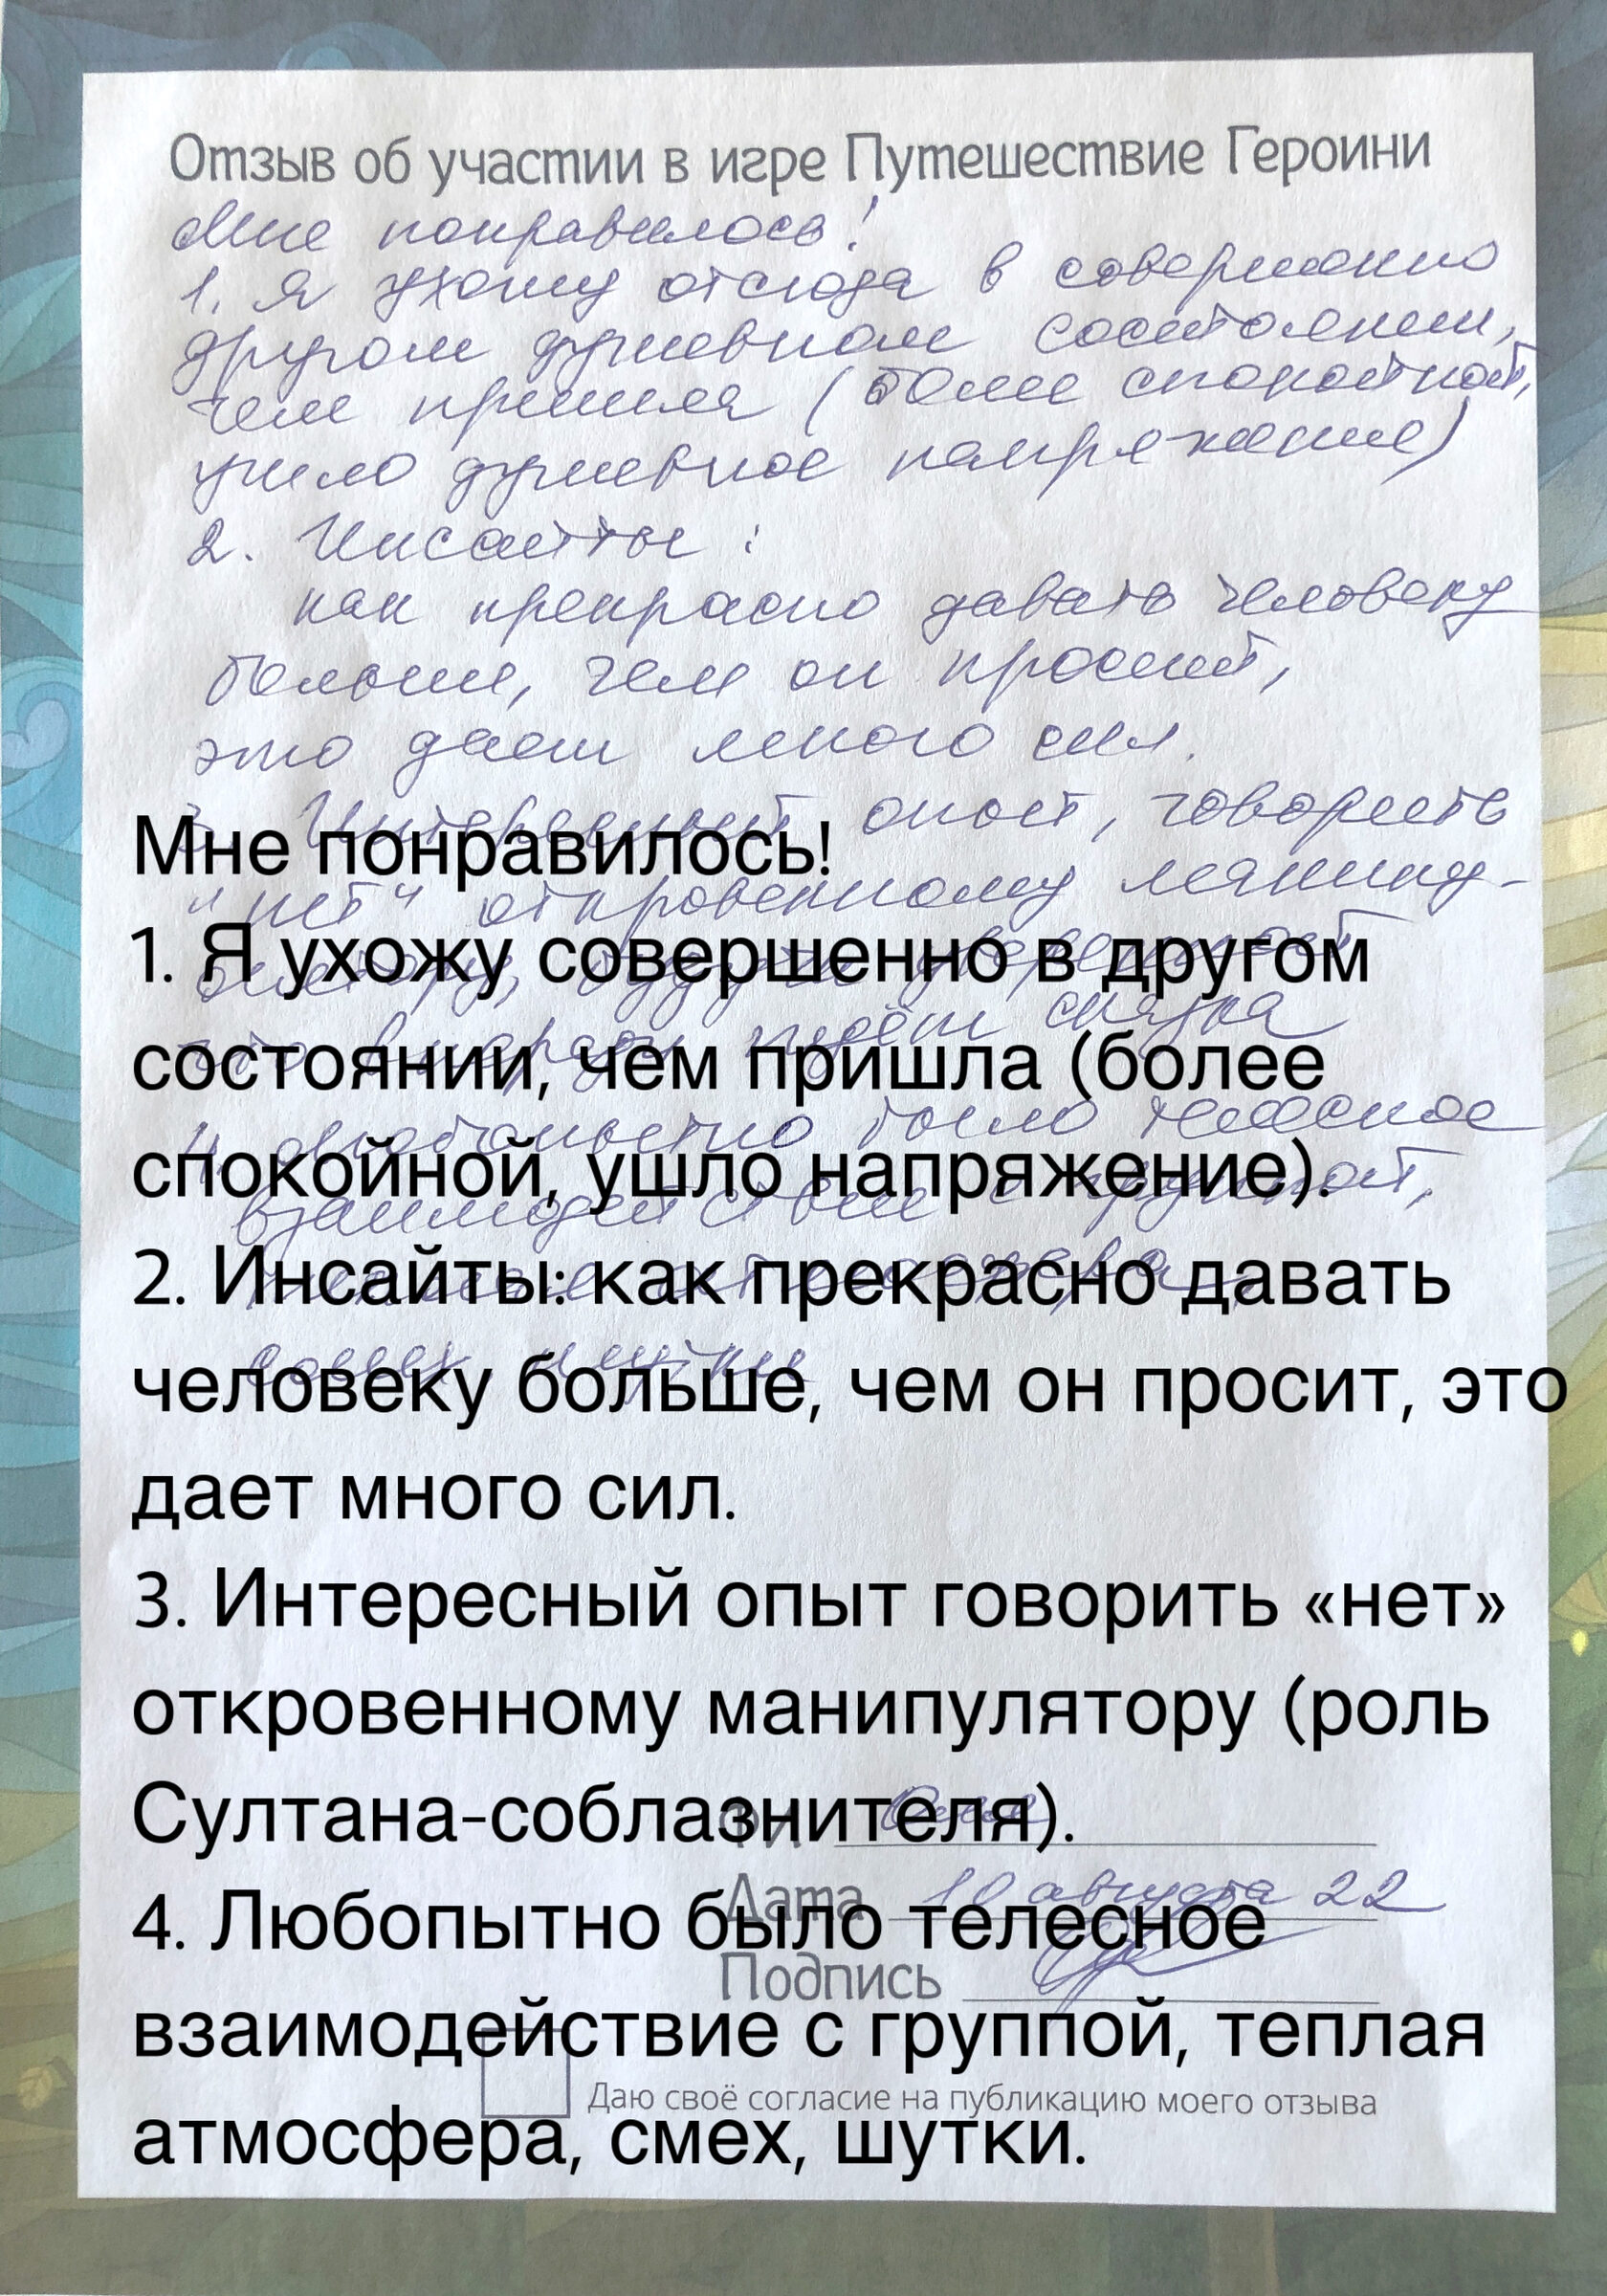 Отзыв об участии в игре Путешествие Героини
Мне понравилось!
1. Я ухожу отсюда в совершенно
другом душевном состоянии,
чем пришла (более спокойной,
ушло душевное напряжение)
2. Инсайты:
как прекрасно давать человеку
больше, чем он просит,
это дает много сил.
3. Интересный опыт, говорить
"нет" откровенному манипу-
сказка
4. Любопытно было телесное
взаимодействие с группой,
Мне понравилось!
1. Я ухожу совершенно в другом
состоянии, чем пришла (более
спокойной, ушло напряжение).
2. Инсайты: как прекрасно давать
человеку больше, чем он просит, это
дает много сил.
3. Интересный опыт говорить «нет»
откровенному манипулятору (роль
Султана-соблазнителя).
4. Любопытно было телесное
взаимодействие с группой, теплая
атмосфера, смех, шутки.
Дата 10 августа 22
Подпись
Даю своё согласие на публикацию моего отзыва